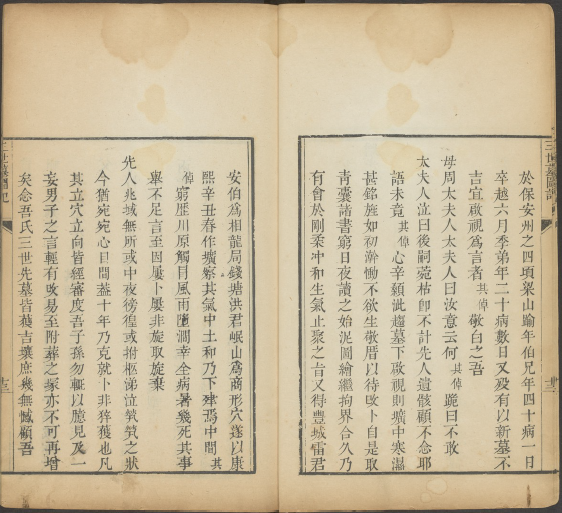 於保安州之四頃梁山踰年伯兄年四十病一日
卒越六月季弟年二十病數日又歿有以新墓不
吉宜啟視爲言者其倬敬白之吾
母周太夫人太夫人曰汝意云何其倬跪曰不敢
太夫人泣曰後嗣菀枯卽不計先人遺骸顧不念耶
語未竟其倬心辛顙泚趨墓下啟視則壙中寒濕
甚銘旌如初漸慟不欲生敬厝以待改卜自是取
青囊諸書窮日夜讀之始泥圖繪繼拘界合久乃
有會於剛柔冲和生氣止聚之旨又得豐城雷君
安伯爲相龍局錢塘洪君岷山爲商形穴遂以康
熙辛丑春作壙察其氣中土和乃下建焉中間其
倬窮歷川原觸月風雨墮澗幸全病暑幾死其事
畢不足言至因屢卜屢非旋取旋棄
先人兆域無所或中夜徬徨或拊柩涕泣煢煢之狀
今猶宛宛心目間蓋十年乃克就卜非猝獲也凡
其立穴立向皆經審度吾子孫勿輒以臆見及一
妄男子之言輕有改易至附葬之冢亦不可再增
矣念吾氏三世先墓皆獲吉壤庶幾無憾顧吾